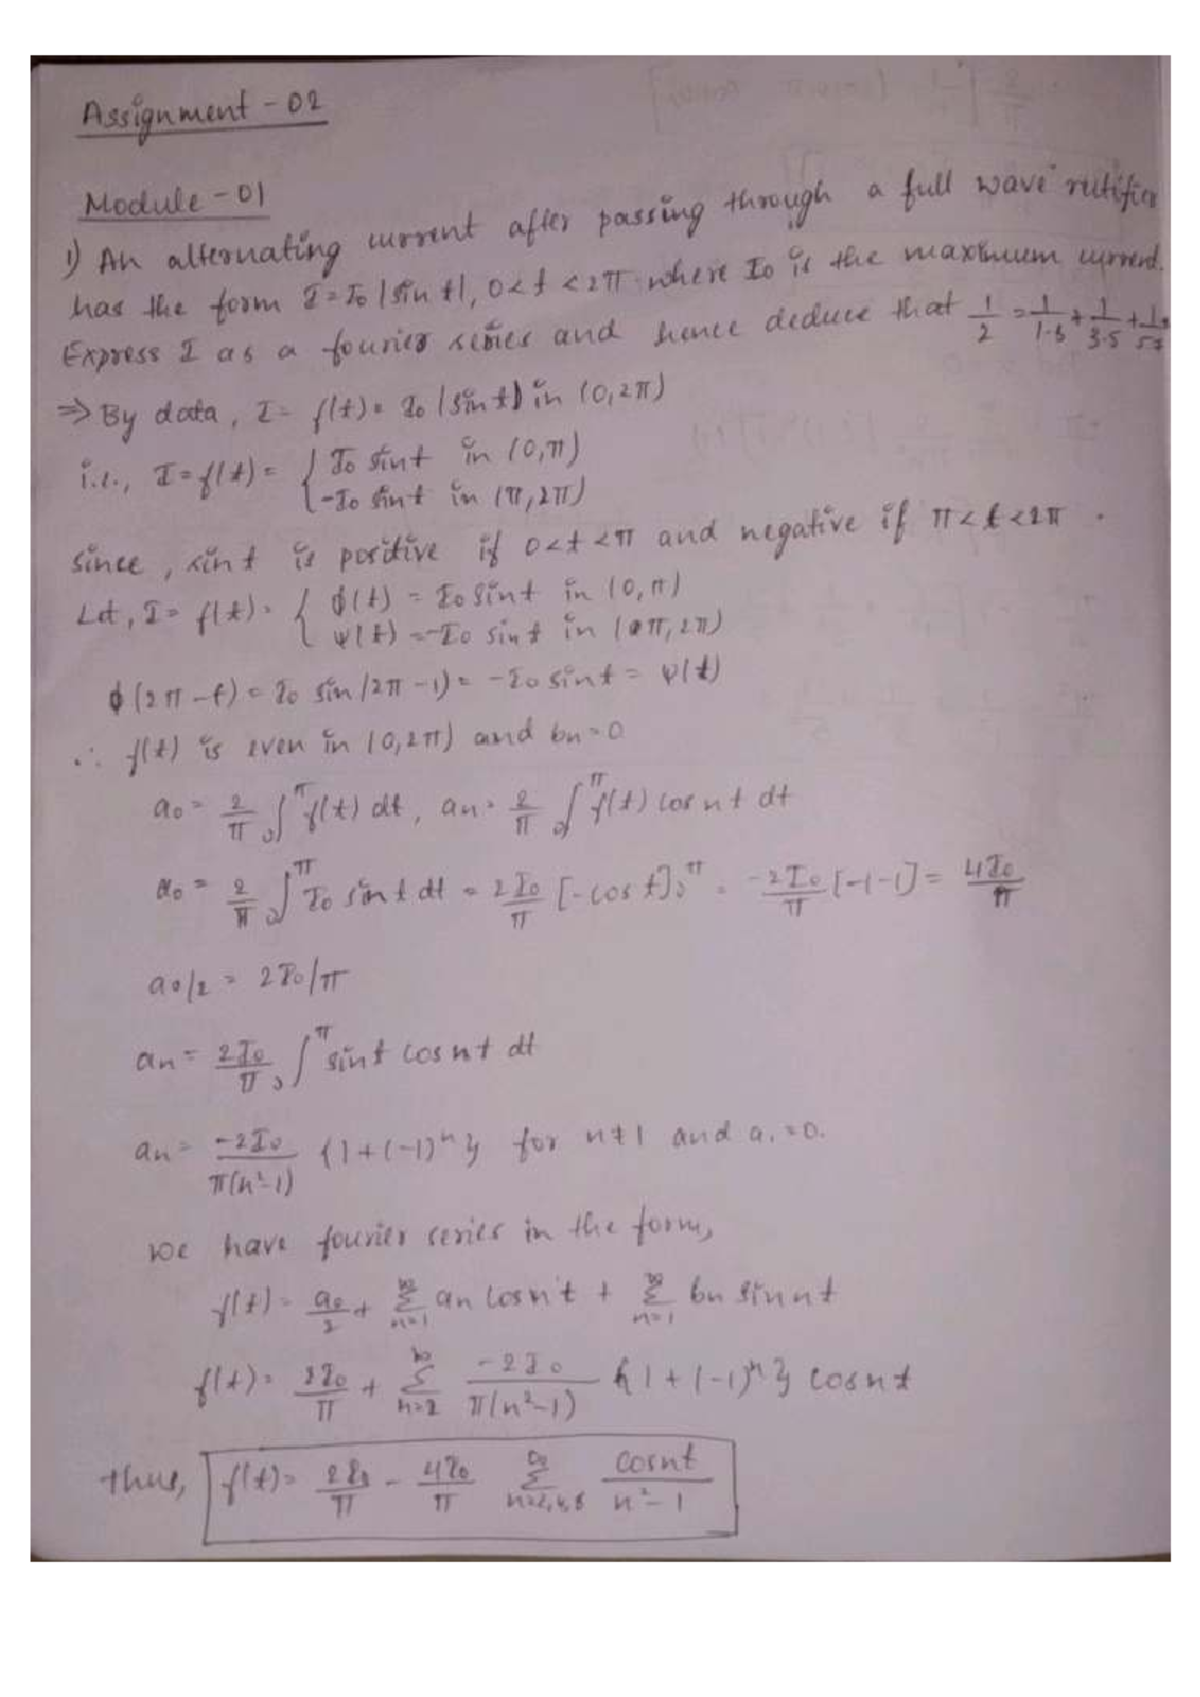 Assignment - 02
Module - 01
1) An alternating current after passing through a full wave rectifier
has the form I = I₀ |sin t|, 0 < t < 2π where I₀ is the maximum current.
Express I as a fourier series and hence deduce that 1/2 = 1/1·3 + 1/3·5 +
⇒ By data, I = f(t) = I₀ |sin t| in (0, 2π)
i.e., I = f(t) = { I₀ sin t in (0, π)
-I₀ sin t in (π, 2π)
since, sin t is positive if 0 < t < π and negative if π < t < 2π .
Let, I = f(t) = { ϕ(t) = I₀ sin t in (0, π)
ψ(t) = -I₀ sin t in (π, 2π)
ϕ(2π - t) = I₀ sin (2π - 1) = -I₀ sin t = ψ(t)
∴ f(t) is even in (0, 2π) and bn = 0
a₀ = 2/π ₀∫^π f(t) dt, an = 2/π ₀∫^π f(t) cos nt dt
a₀ = 2/π ₀∫^π I₀ sin t dt = 2I₀/π [-cos t]₀^π = -2I₀/π [-1-1] = 4I₀/π
a₀/2 = 2I₀/π
an = 2I₀/π ₀∫^π sin t cos nt dt
an = -2I₀/π(n²-1) {1 + (-1)ⁿ} for n ≠ 1 and a₁ = 0.
we have fourier series in the form,
f(t) = a₀/2 + ∞Σn=1 an cos nt + ∞Σn=1 bn sin nt
f(t) = 2I₀/π + ∞Σn=2 -2I₀/π(n²-1) {1 + (-1)ⁿ} cos nt
thus, f(t) = 2I₀/π - 4I₀/π ∞Σn=2,4,6 cosnt/n²-1